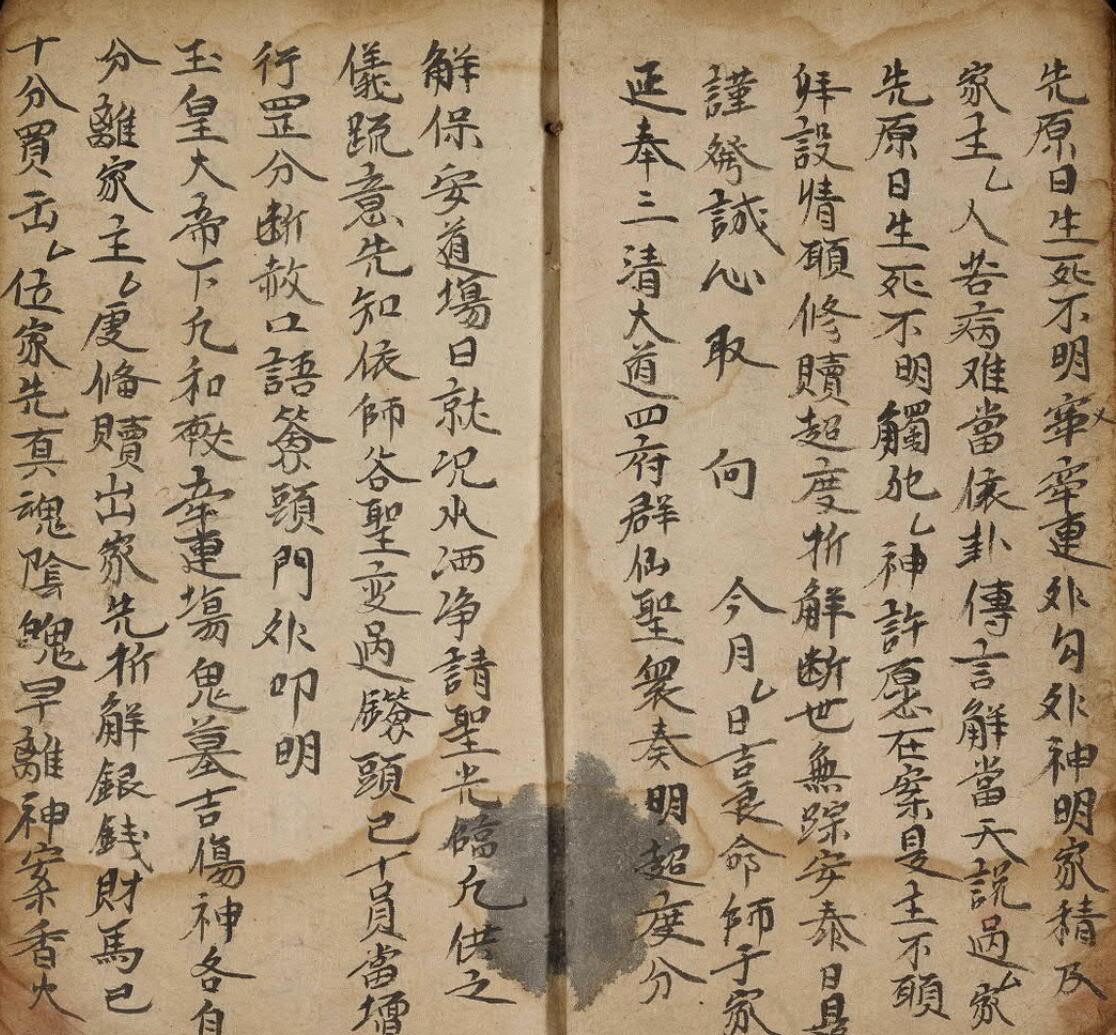 先原日生死不明牽連外勾外神明家精及
家主乙人若病难當依卦傳言解當天説過乙家
先原日生死不明觸犯乙神許愿在案是主不願
拜設情願修贖超度折解断世無踪安泰日是
謹發誠心取向今月乙日吉良命師于家
延奉三清大道四府群仙聖衆奏明超度分
解保安道場日就况水洒净請聖光臨凡供之
儀䟽意先知依師答聖变過籙頭己十員當壇
行罡分断赦口語簽頭門外叩明
玉皇大帝下凡和牽連塲鬼墓吉傷神各自
分離家主乙虔俻贖出家先折解銀銭財馬已
十分買岳乙位家先真魂陰魄早離神案香火